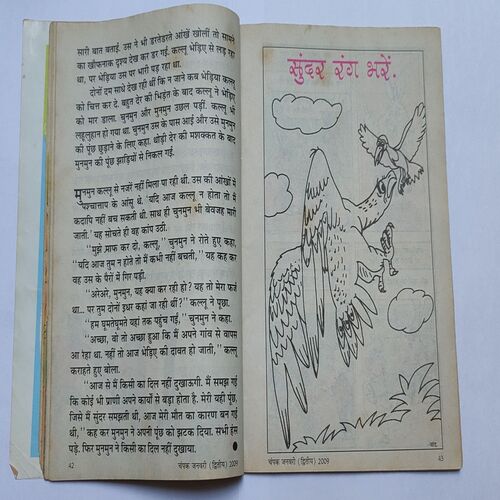 सारी बात बताई. उस ने भी डरतेडरते आंखें खोलीं तो सामने
का खौफनाक दृश्य देख कर डर गई. कल्लू भेड़िए से लड़ रहा
था, पर भेड़िया उस पर भारी पड़ रहा था.
दोनों दम साधे देख रही थीं कि न जाने कब भेड़िया कल्लू
को चित्त कर दे. बहुत देर की भिड़ंत के बाद कल्लू ने भेड़िए
को मार डाला. चुनमुन और मुनमुन उछल पड़ीं. कल्लू भी
लहूलुहान हो गया था. चुनमुन उस के पास आई और उसे मुनमुन
की पूंछ छुड़ाने के लिए कहा. थोड़ी देर की मशक्कत के बाद
मुनमुन की पूंछ झाड़ियों से निकल गई.
मुनमुन कल्लू से नजरें नहीं मिला पा रही थी. उस की आंखों में
पश्चात्ताप के आंसू थे. 'यदि आज कल्लू न होता तो मैं
कदापि नहीं बच सकती थी. साथ ही चुनमुन भी बेवजह मारी
जाती.' यह सोचते ही वह कांप उठी.
"मुझे माफ कर दो, कल्लू," चुनमुन ने रोते हुए कहा,
"यदि आज तुम न होते तो मैं कभी नहीं बचती," यह कह कर
वह उस के पैरों में गिर पड़ी.
"अरेअरे, मुनमुन, यह क्या कर रही हो? यह तो मेरा फर्ज
था... पर तुम दोनों इधर कहां जा रही थीं?" कल्लू ने पूछा.
"हम घूमतेघूमते यहां तक पहुंच गईं," चुनमुन ने कहा.
"अच्छा, वो तो अच्छा हुआ कि मैं अपने गांव से वापस
आ रहा था. नहीं तो आज भेड़िए की दावत हो जाती," कल्लू
कराहते हुए बोला.
"आज से मैं किसी का दिल नहीं दुखाऊंगी. मैं समझ गई
कि कोई भी प्राणी अपने कार्यों से बड़ा होता है. मेरी यही पूंछ,
जिसे मैं सुंदर समझती थी, आज मेरी मौत का कारण बन गई
थी," कह कर मुनमुन ने अपनी पूंछ को झटक दिया. सभी हंस
पड़े. फिर मुनमुन ने किसी का दिल नहीं दुखाया.
42 चंपक जनवरी (द्वितीय) 2009
सुंदर रंग भरें.
43